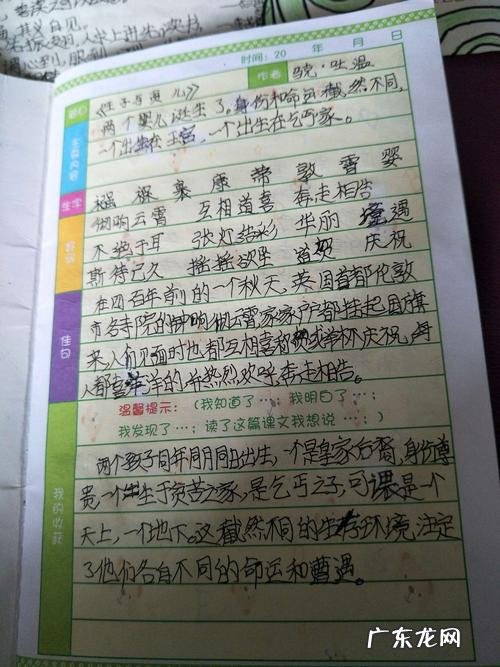 时间：20 年 月 日
作者 骁·吐温
《王子与贫儿》
两个婴儿诞生了。身份和命运截然不同，
一个出生在王宫，一个出生在乞丐家。
主要内容
生字
襁 褓 襄 康 蒂 敦 霄 婴
好词
彻响云霄 互相道喜 奔走相告
不绝于耳 张灯结彩 华丽 遭遇
斯待已久 摇摇欲坠 道贺 庆祝
佳句
在四百年前的一个秋天，英国首都伦敦
市名寺院的钟响彻云霄家家户户都挂起国旗
来，人们见面时也都互相喜称 或举杯庆祝，每
人都喜 洋洋的 热烈欢呼奔走相告。
温馨提示： （我知道了…；我明白了…；
我发现了…；读了这篇课文我想说…；）
我的收获
两个孩子同年月同日出生，一个是皇家后裔，身份尊
贵，一个 生于贫苦之家，是乞丐之子，可谓是一个
天上，一个地下。这截然不同的生存环境，注定
了他们各自不同的命运和遭遇。
广东龙网